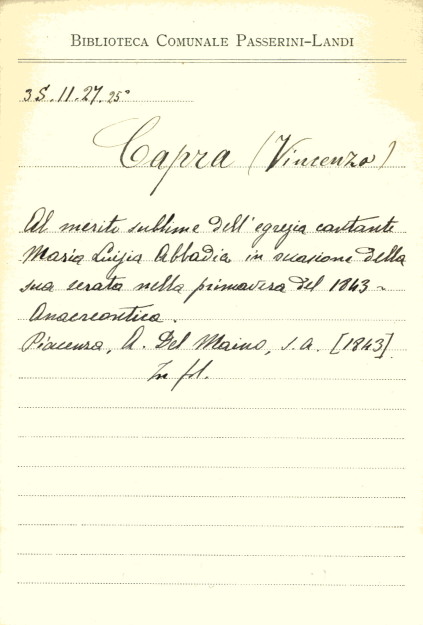 BIBLIOTECA COMUNALE PASSERINI-LANDI
3S.11.27.25°
Capra (Vincenzo)
Al merito sublime dell'egregia cantante
Maria Luigia Abbadia in occasione della
sua serata nella primavera del 1843 -
Anacreontica.
Piacenza, A. Del Maino, s.a. [1843]
In fol.